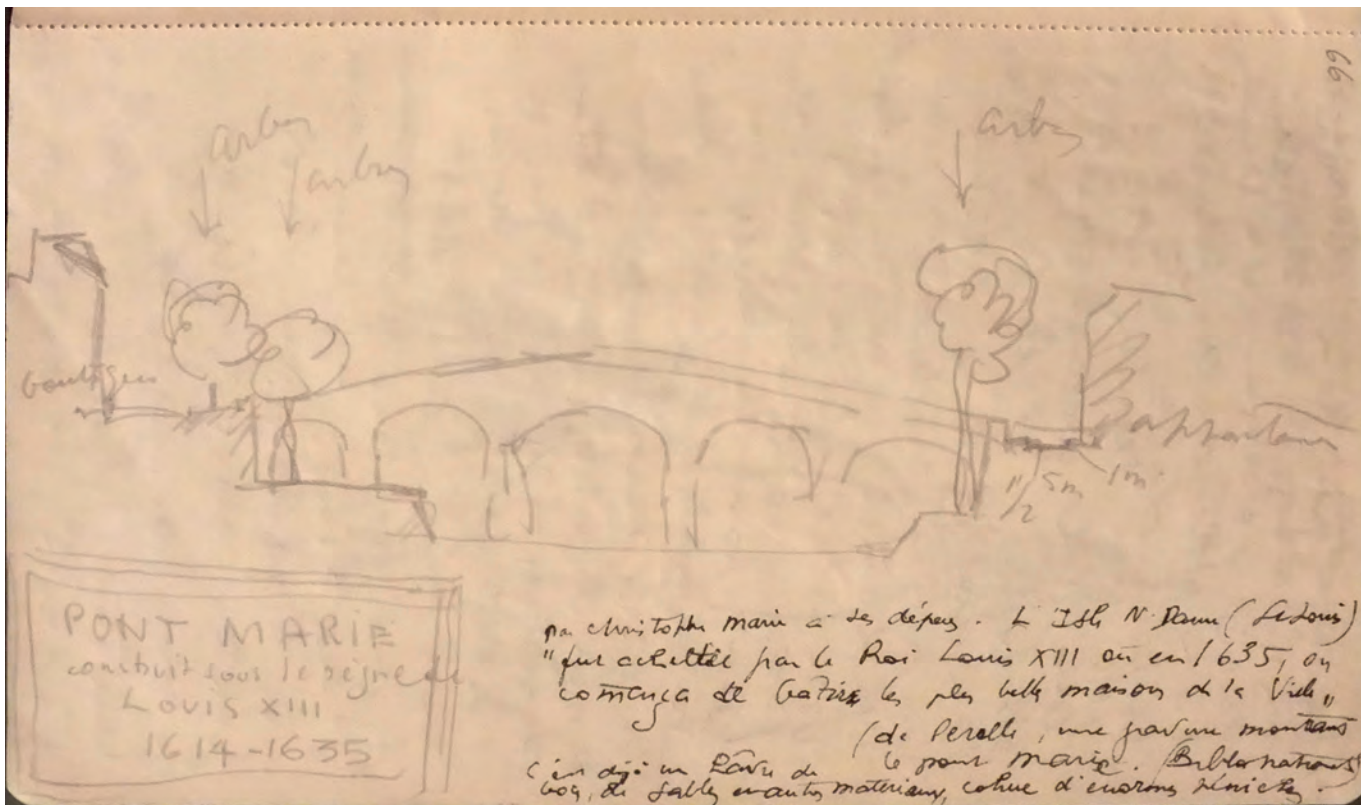 99
arbres
arbres
arbres
boutiques
1m
1/2 5m
PONT MARIE
construit sous le règne de
LOUIS XIII
1614-1635
par christophe marie à ses dépens. L'Isle N. Dame (St Louis)
"fut achettée par le Roi Louis XIII où en 1635, on
començа de batire les plus belle maisons de la Ville"
(de Perelle, une gravure montrant
le pont marie. (Biblio nationale)
c'en déjà un de
bois, de sables et autres materiaux, d'enormes péniches.